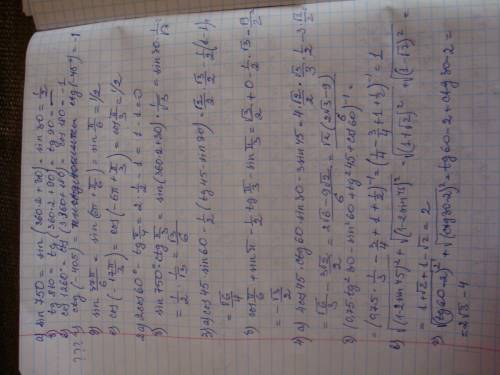 а) sin 750 = sin (360·2+30) = sin 30 = 1/2
б) tg 810 = tg (360·2+90) = tg 90 = —
в) cos 1260° = cos (3·360+180) = cos 180 = -1
г) ctg (-405) = ctg(-45°) = -1
д) sin 37π/6 = sin (6π + π/6) = sin π/6 = 1/2
е) cos (-19π/3) = cos (-6π - π/3) = cos π/3 = 1/2
2 а) 2cos 60° - tg π/4 = 2·1/2 - 1 = 1-1 = 0
б) sin 750° ctg π/3 = sin (360·2+30) · 1/√3 = sin 30 · 1/√3
= 1/2 · 1/√3 = √3/6
3) а) cos 45 · sin 60 - 1/2 (tg 45 - sin 90) = √2/2 · √3/2 - 1/2 (1-1) =
= √6/4
б) cos π/6 + sin π - 1/2 tg π/3 - sin π/3 = √3/2 + 0 - 1/2 · √3 - √3/2
= -√3/2
4) а) 4cos 45 · ctg 60 · sin 30 - 3sin 45 = 4 √2/2 · √3/3 · 1/2 - 3 √2/2 =
= √6/3 - 3√2/2 = 2√6 - 9√2 / 6 = √2(2√3-9) / 6
б) (0,75 tg² 30 - sin² 60 + tg² 45 + cos 60)⁻¹ =
= (0,75 · 1/3 - 3/4 + 1 + 1/2)⁻¹ = (1/4 - 3/4 + 1 + 1/2)⁻¹ = 1
в) √(1-2sin 45)² + √(1-2sin 45)² = √(1+√2)² + √(1-√2)² =
= 1+√2 + 1-√2 = 2
г) √(tg 60-2)² + √(ctg 30-2)² = tg 60-2 + ctg 30-2 =
= 2√3 - 4